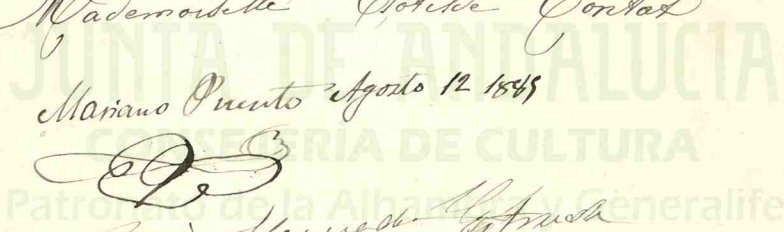 Mademoiselle Clotilde Contat
JUNTA DE ANDALUCIA
Mariano Puerto Agosto 12 1889
CONSEJERIA DE CULTURA
Patronato de la Alhambra y Generalife